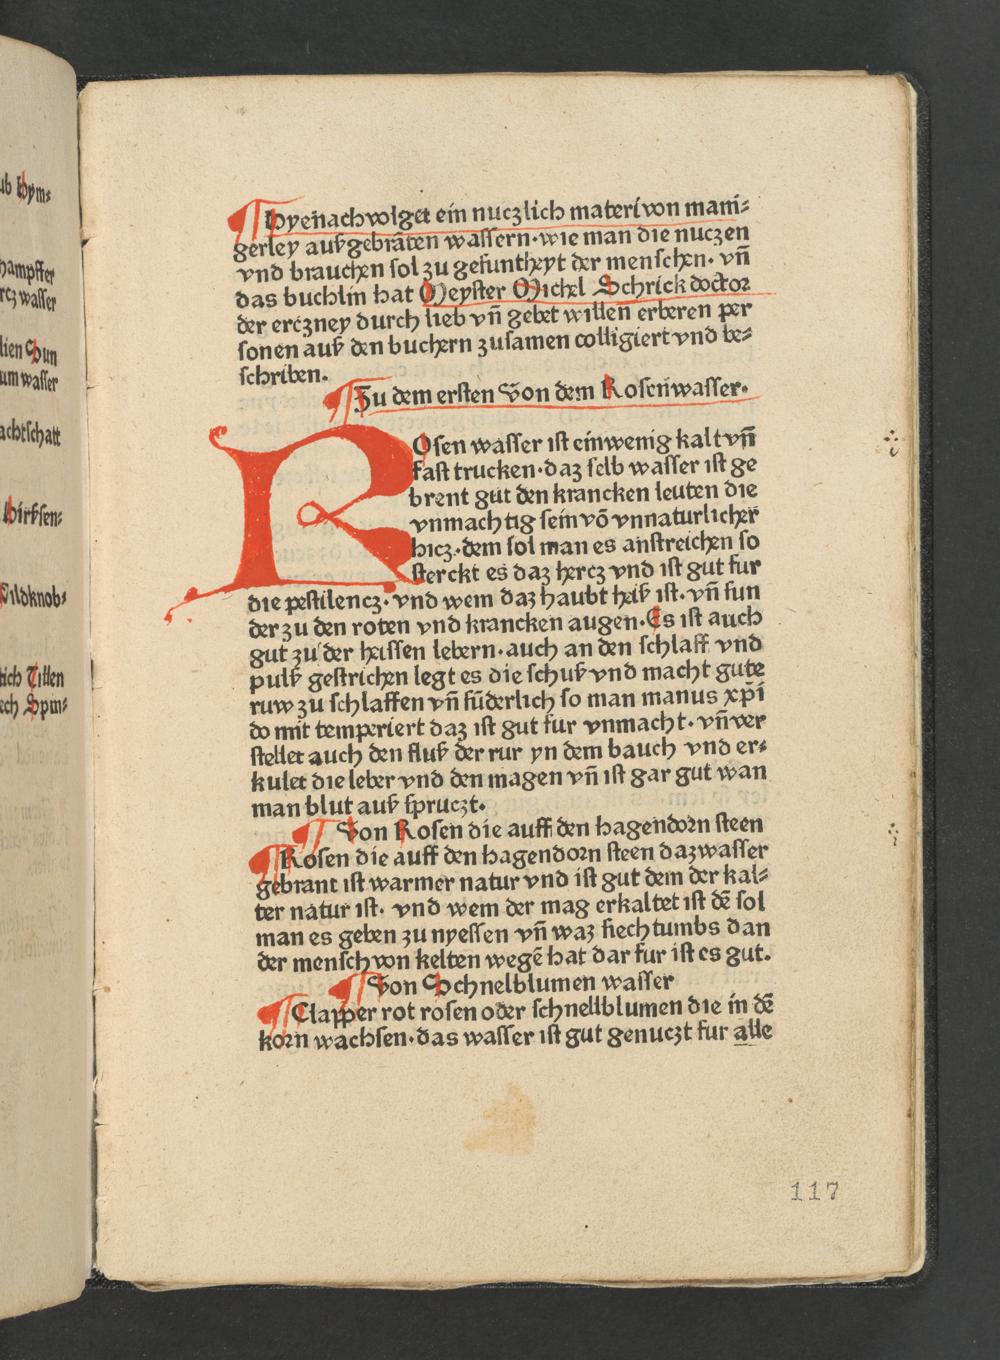 ub Hym⸗
hampffer
rcz wasser
lien Sun
um wasser
achtschatt
Hirßsen⸗
Wildknob⸗
tich Tillen
ech Spin⸗
¶ Hyenach volget ein nuczlich materi von mani⸗
gerley außgebrāten wassern · wie man die nuczen
vnd brauchen sol zu gesuntheyt der menschen · vn̄
das buchlin hat Meyster Michel Schrick doctor
der erczney durch lieb vn̄ gebet willen erberen per
sonen auß den buchern zusamen colligiert vnd be⸗
schriben.
¶ Zu dem ersten Von dem Rosenwasser.
ROsen wasser ist ein wenig kalt vn̄
fast trucken · daz selb wasser ist ge
brent gut den krancken leuten die
vnmachtig sein vō vnnaturlicher
hicz · dem sol man es anstreichen so
sterckt es daz hercz vnd ist gut fur
die pestilencz · vnd wem daz haubt heiß ist · vn̄ sun
der zu den roten vnd krancken augen · Es ist auch
gut zu der heissen lebern · auch an den schlaff vnd
pulß gestrichen legt es die schuß vnd macht gute
ruw zu schlaffen vn̄ sūderlich so man manus xp̄i
do mit temperiert daz ist gut fur vnmacht · vn̄ ver
stellet auch den fluß der rur yn dem bauch vnd er⸗
kulet die leber vnd den magen vn̄ ist gar gut wan
man blut auß spruczt.
¶ Von Rosen die auff den hagendorn steen
¶ Rosen die auff den hagendorn steen daz wasser
gebrant ist warmer natur vnd ist gut dem der kal⸗
ter natur ist · vnd wem der mag erkaltet ist dē sol
man es geben zu nyessen vn̄ waz siechtumbs dan
der mensch von kelten wegē hat dar fur ist es gut.
¶ Von Schnelblumen wasser
¶ Clapper rot rosen oder schnellblumen die in dē
korn wachsen · das wasser ist gut genuczt fur alle
117